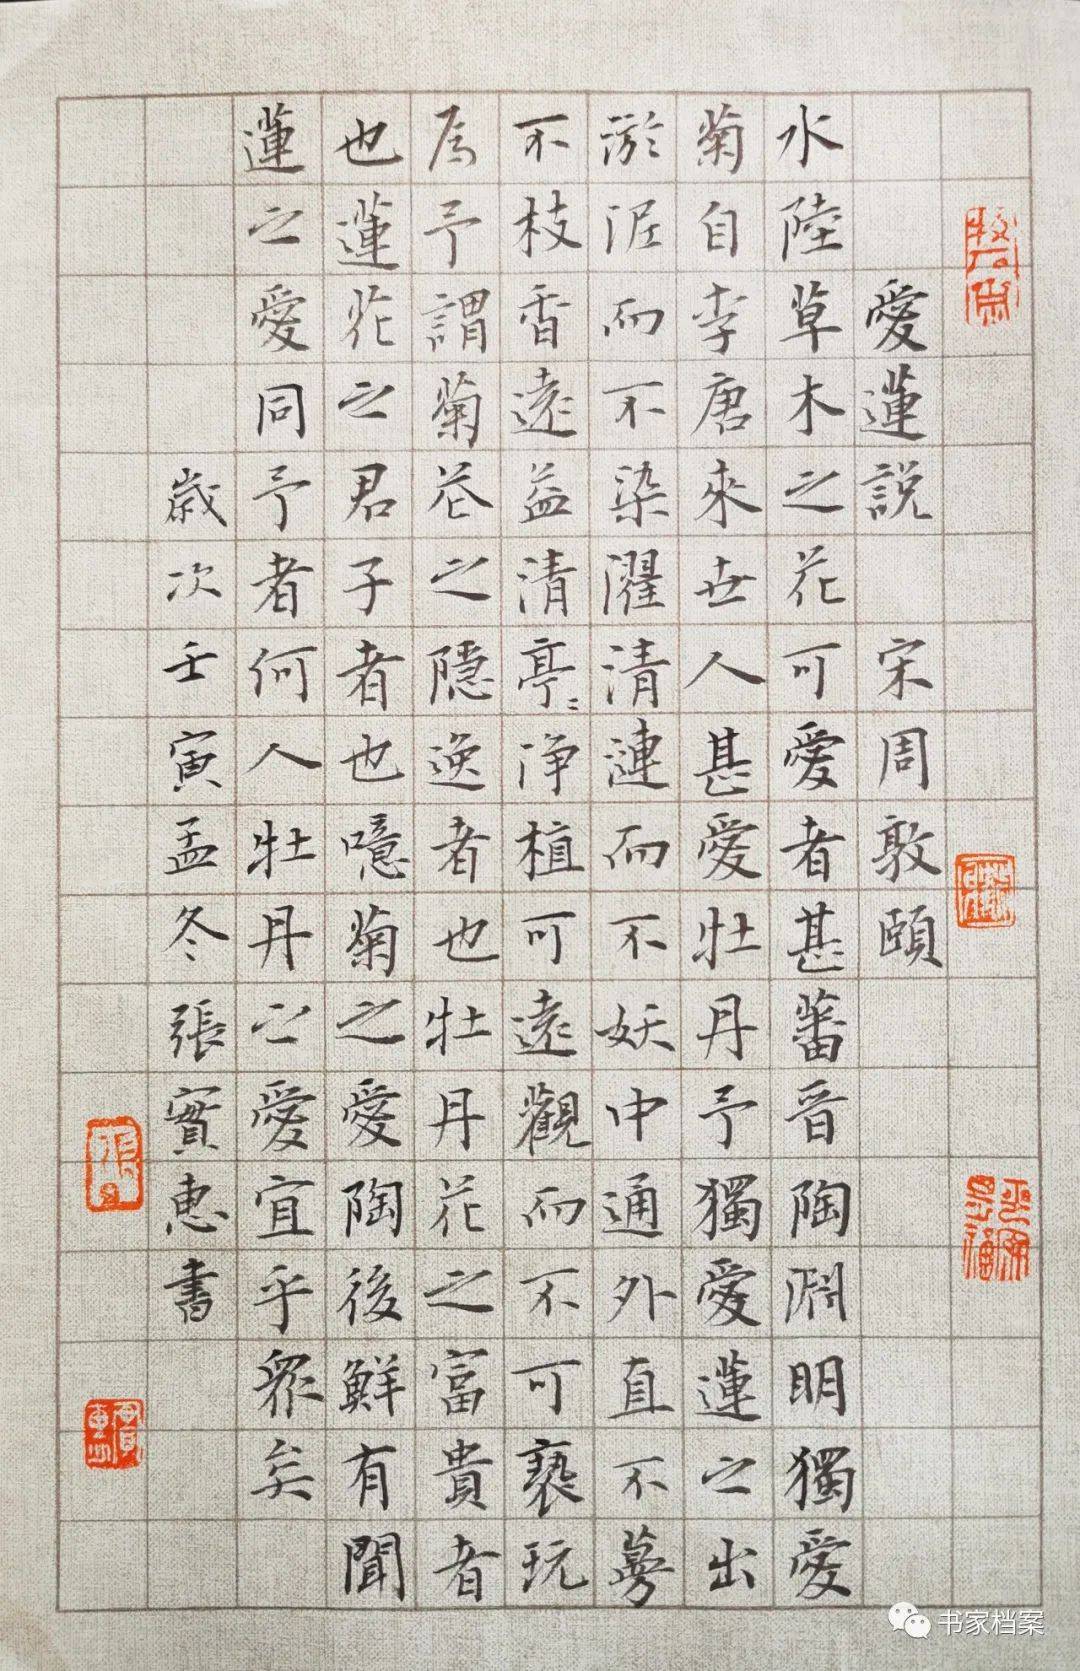 愛蓮説 宋周敦頤
水陸草木之花可愛者甚蕃晉陶淵明獨愛
菊自李唐來世人甚愛牡丹予獨愛蓮之出
淤泥而不染濯清漣而不妖中通外直不蔓
不枝香遠益清亭〻净植可遠觀而不可褻玩
焉予謂菊花之隱逸者也牡丹花之富貴者
也蓮花之君子者也噫菊之愛陶後鮮有聞
蓮之愛同予者何人牡丹之愛宜乎衆矣
歲次壬寅孟冬張實惠書
书家档案